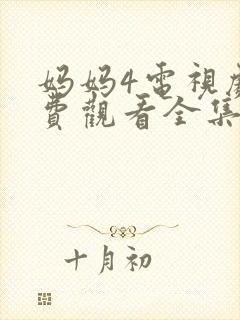 妈妈4電視
費觀看全集
十月初